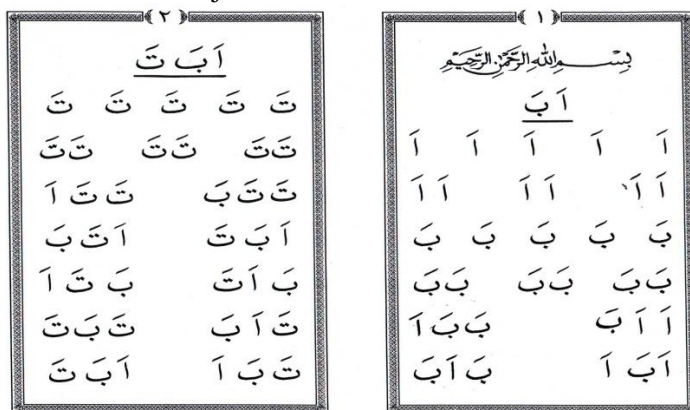 ١
بِسْمِ اللهِ الرَّحْمٰنِ الرَّحِيْمِ
اَ بَ
اَ اَ اَ اَ اَ
اَ اَ اَ اَ اَ اَ
بَ بَ بَ بَ بَ
بَ بَ بَ بَ بَ بَ
اَ اَ بَ بَ بَ اَ
اَ بَ اَ بَ اَ بَ
٢
اَ بَ تَ
تَ تَ تَ تَ تَ
تَ تَ تَ تَ تَ تَ
تَ تَ بَ تَ تَ اَ
اَ بَ تَ اَ تَ بَ
بَ اَ تَ بَ تَ اَ
تَ اَ بَ تَ بَ تَ
تَ بَ اَ اَ بَ تَ